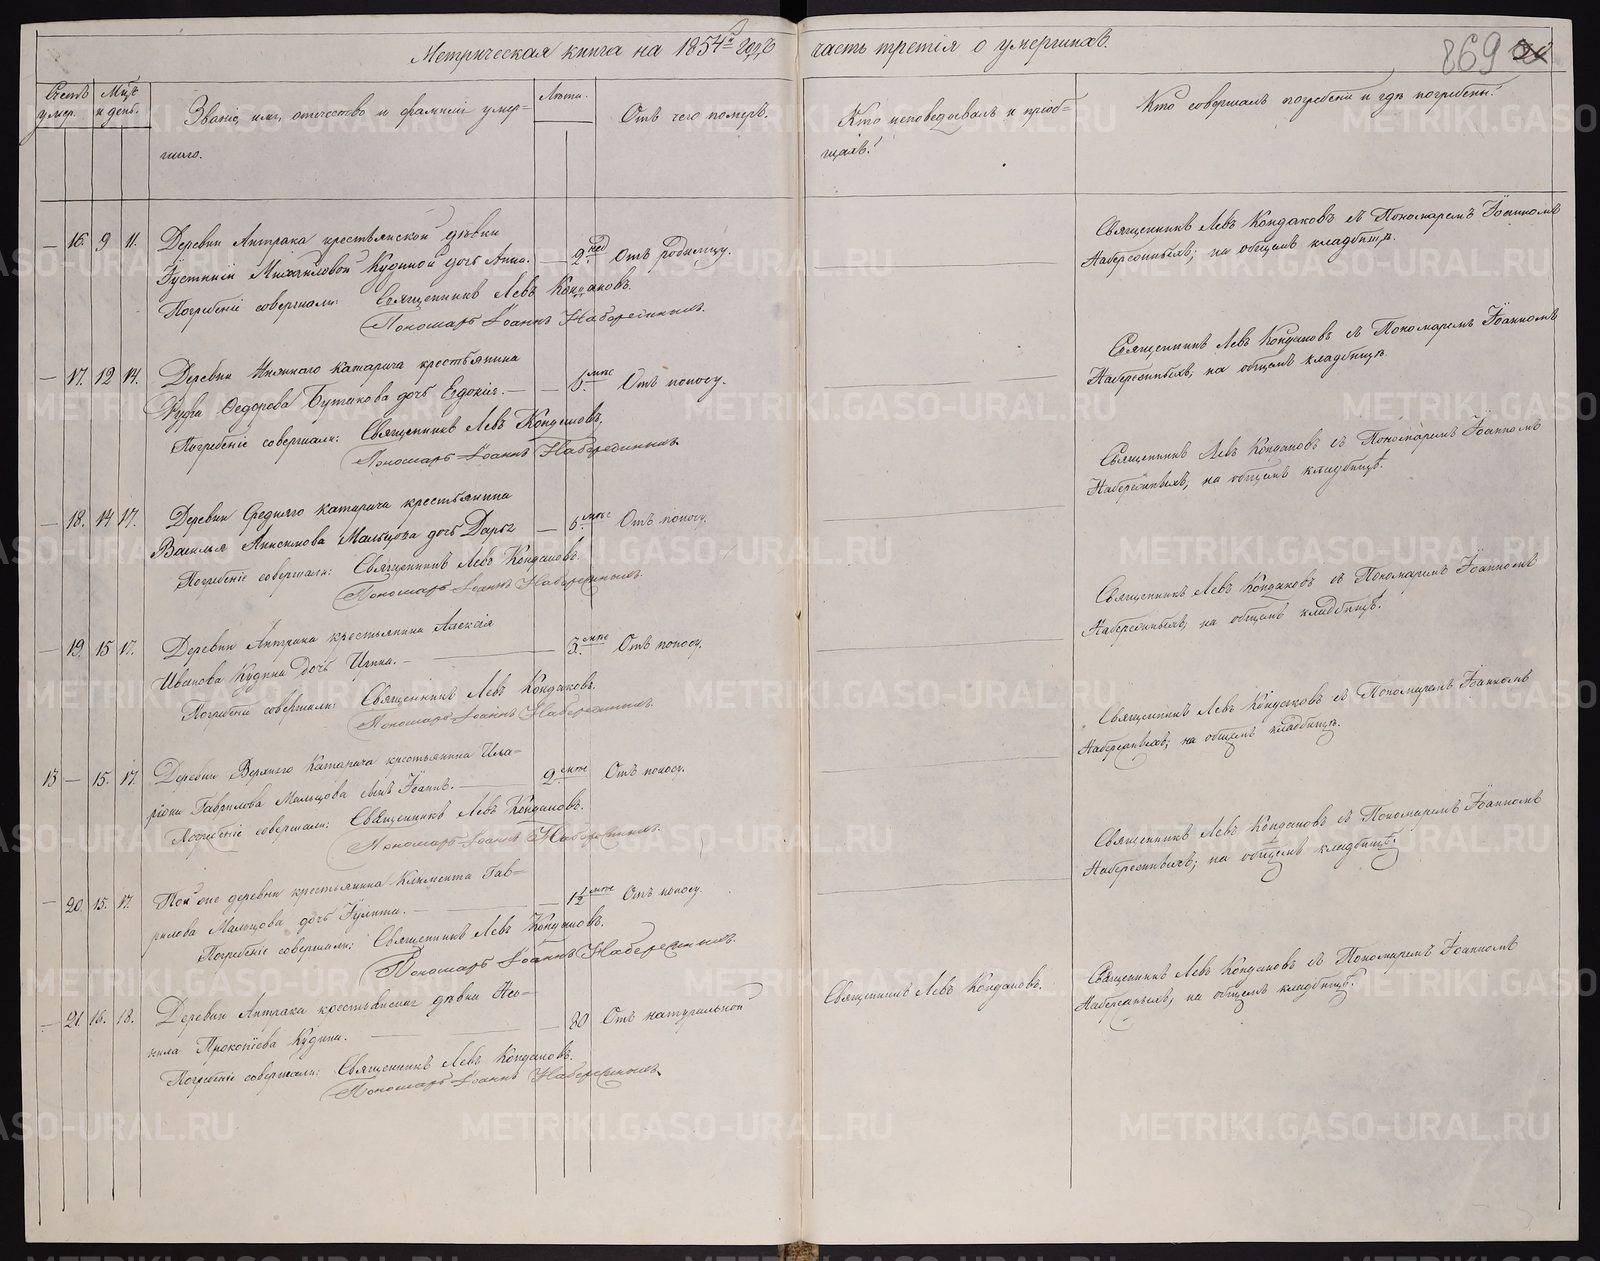 Метрическая книга на 1854й годъ часть третія о умершихъ.
869
Счетъ умер.
Мѣц. и день.
Званіе, имя, отечество и фамилія умер=
шаго.
Лѣта.
Отъ чего померъ.
Кто исповедовалъ и пріоб=
щалъ.
Кто совершалъ погребеніе и где погребены.
— 16. 9 11. Деревни Антрака крестьянской дѣвки
Іустиніи Михаиловой Кудиной дочь Анна. — 2. нед Отъ родимцу.
Погребеніе совершали: Священникъ Левъ Кондаковъ.
Пономарь Іоаннъ Набережныхъ.
Священникъ Левъ Кондаковъ съ Пономаремъ Іоанномъ
Набережныхъ; на общемъ кладбищѣ.
— 17. 12 14. Деревни Нижняго Катарача крестьянина
Федорова Бутакова дочь Евдокія. — 5. мце Отъ поносу.
Погребеніе совершали: Священникъ Левъ Кондаковъ.
Пономарь Іоаннъ Набережныхъ
Священникъ Левъ Кондаковъ съ Пономаремъ Іоанномъ
Набережныхъ, на общемъ кладбищѣ.
— 18. 14 17. Деревни Средняго Катарача крестьянина
Василья Анисимова Мальцова дочь Дарья — 6. мце Отъ поносу.
Погребеніе совершали: Священникъ Левъ Кондаковъ.
Пономарь Іоаннъ Набережныхъ.
Священникъ Левъ Кондаковъ съ Пономаремъ Іоанномъ
Набережныхъ, на общемъ кладбищѣ.
— 19. 15 17. Деревни Антрака крестьянина Алексія
Иванова Кудина дочь Ирина. — 3. мце Отъ поносу.
Погребеніе совершали: Священникъ Левъ Кондаковъ.
Пономарь Іоаннъ Набережныхъ.
Священникъ Левъ Кондаковъ съ Пономаремъ Іоанномъ
Набережныхъ, на общемъ кладбищѣ.
13 — 15. 17. Деревни Верхняго Катарача крестьянина Ила=
ріона Гаврилова Мальцова сынъ Іоаннъ. — 2. мце Отъ поносу.
Погребеніе совершали: Священникъ Левъ Кондаковъ.
Пономарь Іоаннъ Набережныхъ.
Священникъ Левъ Кондаковъ съ Пономаремъ Іоанномъ
Набережныхъ; на общемъ кладбищѣ.
— 20. 15. 17. Той же деревни крестьянина Климента Гав=
рилова Мальцова дочь Іулитта. — 1½ мце Отъ поносу.
Погребеніе совершали: Священникъ Левъ Кондаковъ.
Пономарь Іоаннъ Набережныхъ.
Священникъ Левъ Кондаковъ съ Пономаремъ Іоанномъ
Набережныхъ; на общемъ кладбищѣ.
— 21. 16. 18. Деревни Антрака крестьянская дѣвка Нео=
нила Прокопіева Кудина. — 80 Отъ натуральной
Погребеніе совершали: Священникъ Левъ Кондаковъ.
Пономарь Іоаннъ Набережныхъ.
Священникъ Левъ Кондаковъ.
Священникъ Левъ Кондаковъ съ Пономаремъ Іоанномъ
Набережныхъ, на общемъ кладбищѣ.
METRIKI.GASO-URAL.RU